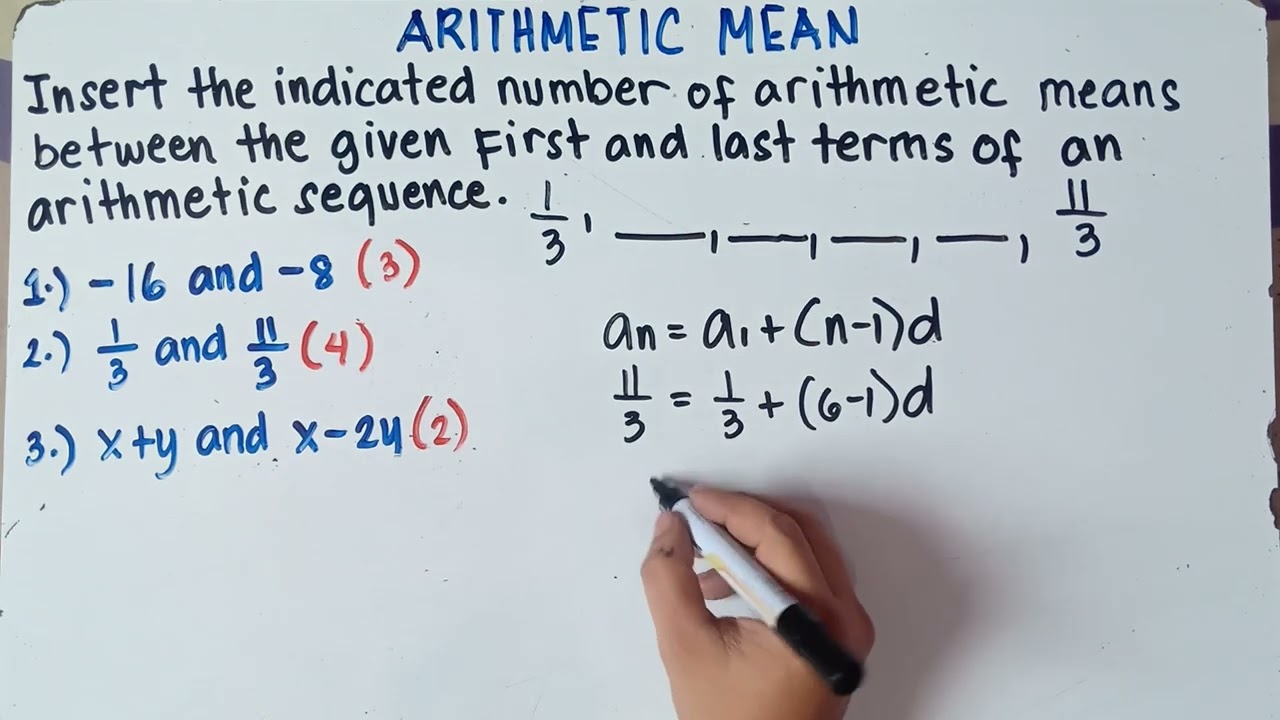 ARITHMETIC MEAN
Insert the indicated number of arithmetic means
between the given First and last terms of an
arithmetic sequence.
1/3, ___, ___, ___, ___, 11/3
1.) -16 and -8 (3)
2.) 1/3 and 11/3 (4)
3.) x+y and x-2y (2)
an = a1 + (n-1)d
11/3 = 1/3 + (6-1)d